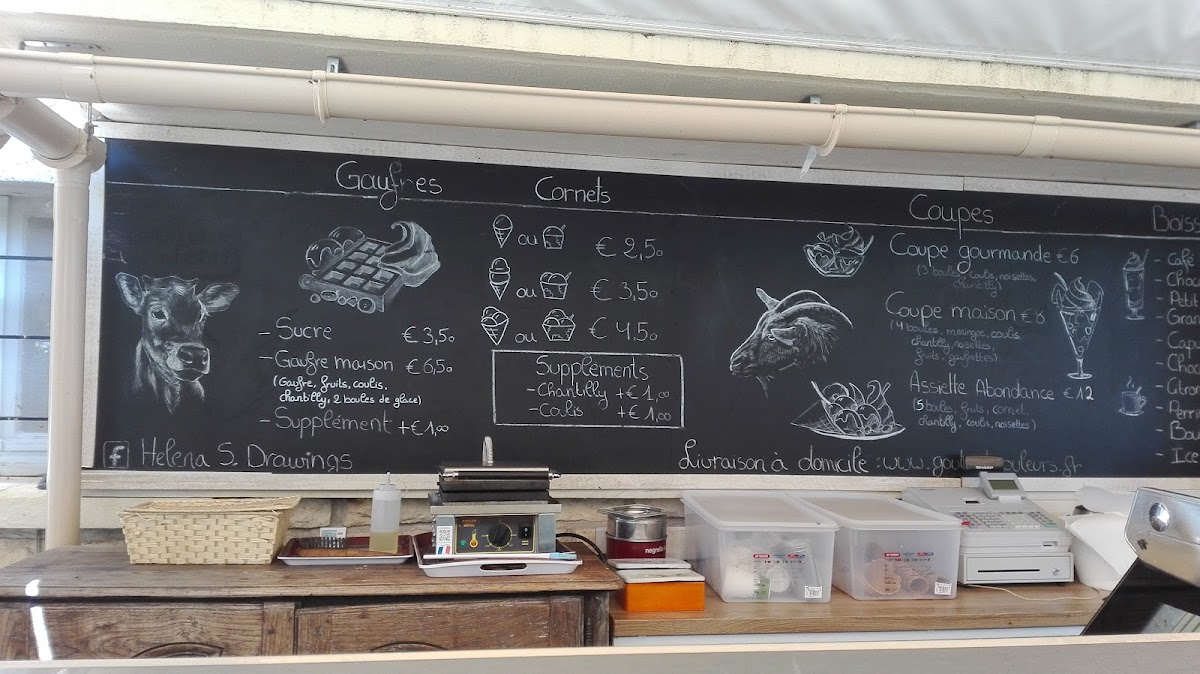 Gaufres
- Sucre € 3,50
- Gaufre maison € 6,50
(Gaufre, fruits, coulis,
chantilly, 2 boules de glace)
- Supplément + € 1,00
f Helena S. Drawings
Cornets
ou € 2,50
ou € 3,50
ou € 4,50
Suppléments
- Chantilly + € 1,00
- Coulis + € 1,00
Coupes
Coupe gourmande € 6
(3 boules, coulis, noisettes,
chantilly)
Coupe maison € 8
(4 boules, meringue, coulis,
chantilly, noisettes,
fruits, gaufrettes)
Assiette Abondance € 12
(5 boules, fruits, cornet,
chantilly, coulis, noisettes)
Livraison à domicile : www.
Boiss
- Café
- Choc
- Petit
- Gran
- Capu
- Choc
- Perri
- Bou
- Ice
SHARP
negretto